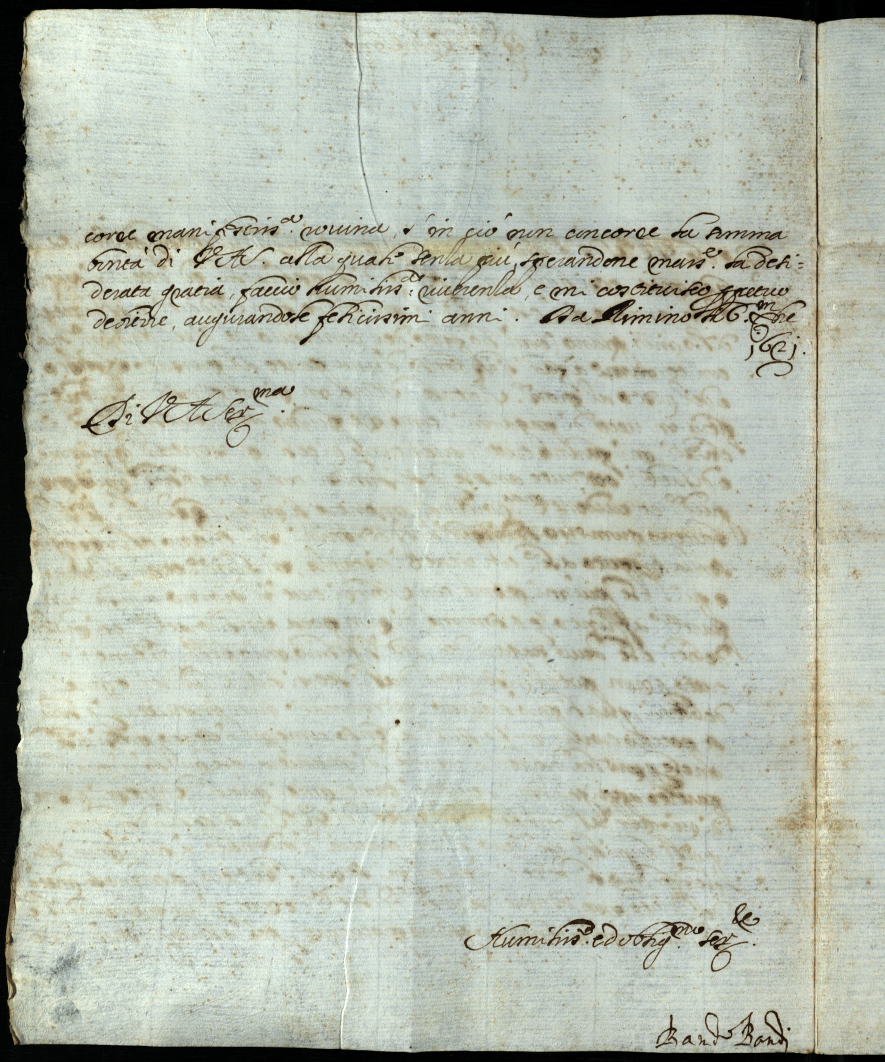 corre manifestiss.ª rovina, s'in ciò non concorre la somma
bontà di V.A.S. alla quale senza più, sperandone mass.ª la desi=
derata gratia, faccio humiliss.ª riverenza, e mi costituisco
devotre, augurandole felicissimi anni. Da Rimino 6. Xbre
1621.
Di V.A. Ser.ma
Humiliss.º ed oblig.mo ser.re
Band.º Bandi